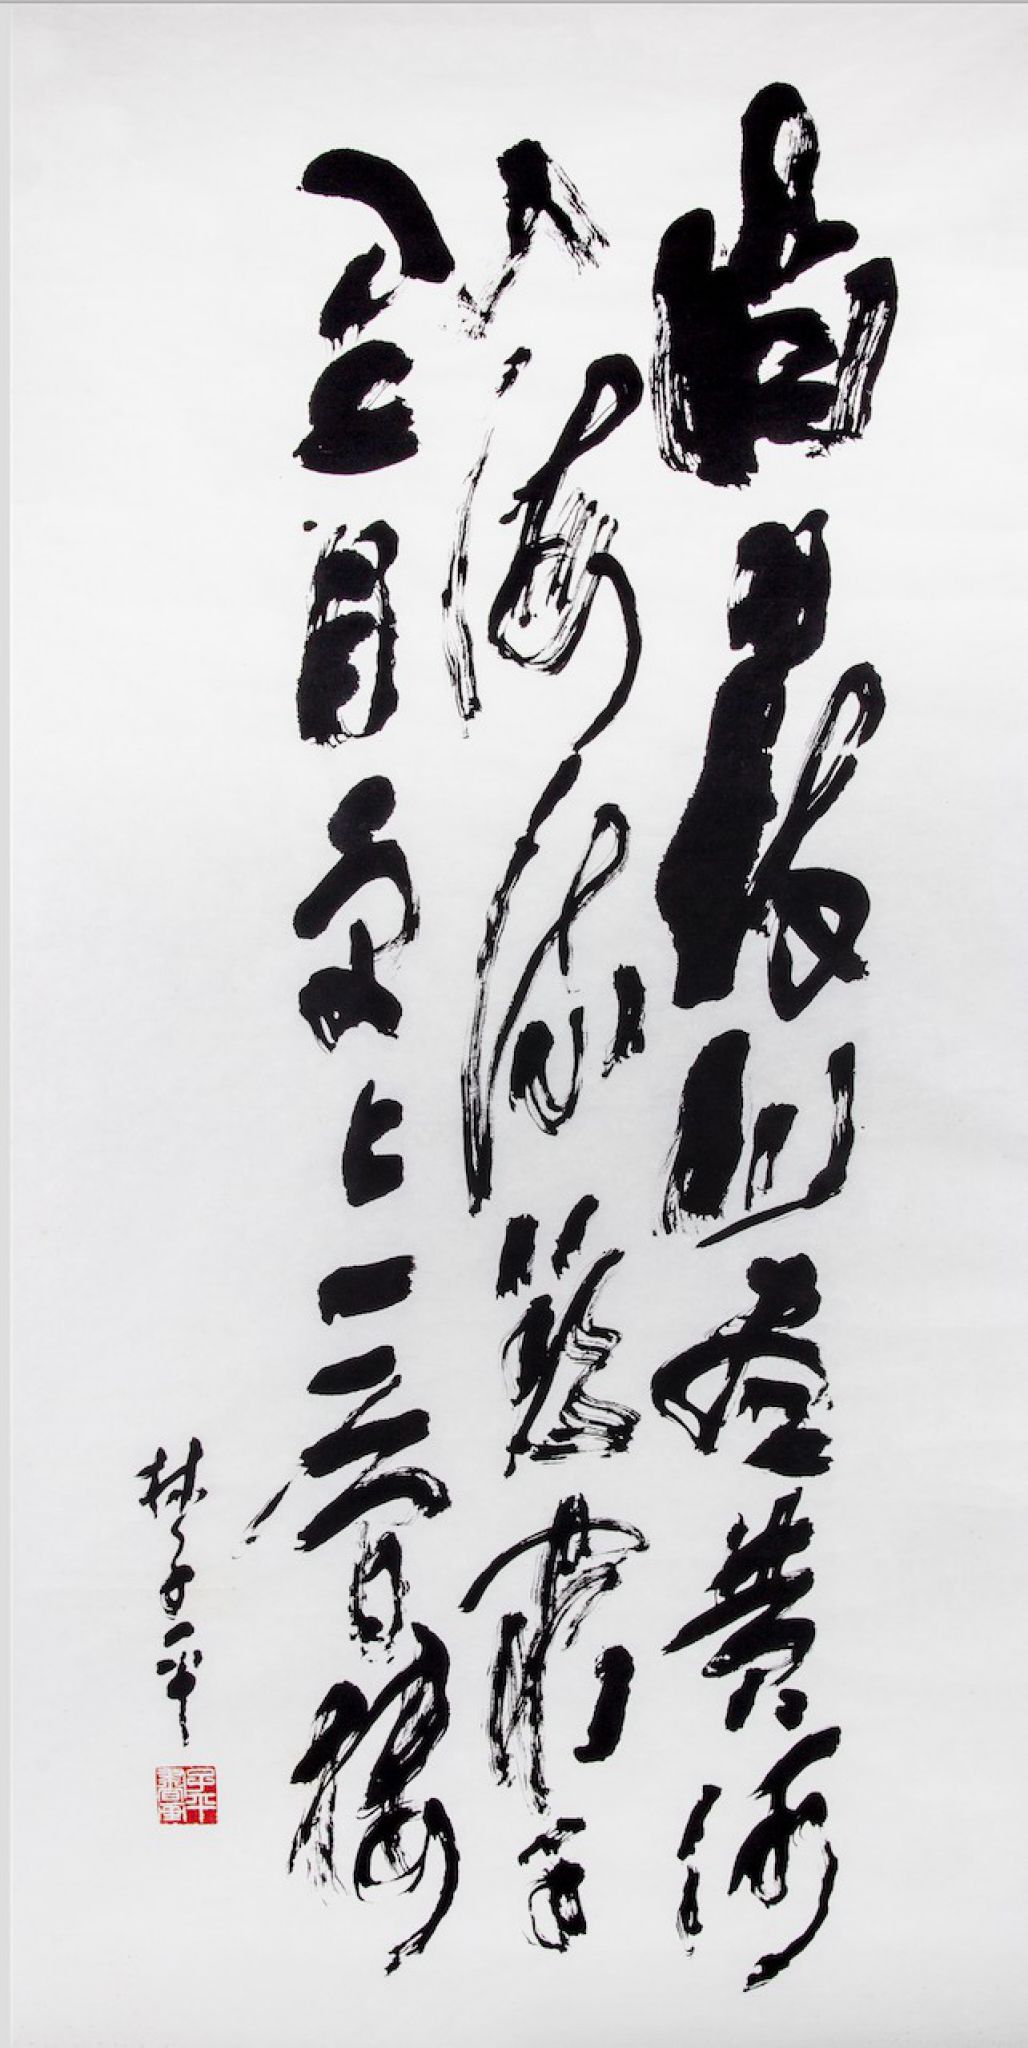 白日依山盡黃河
入海流欲窮千
里目更上一層樓
林子平